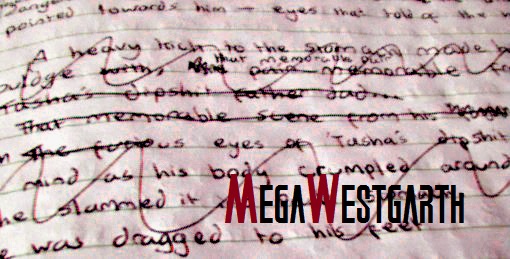 pointed towards him – eyes that told of the
A heavy kick to the stomach made
that memorable pair
memorable
Tasha's dipshit father dad...
That memorable scene from his
the furious eyes of Tasha's dipshit
mind as his body crumpled around
he slammed it
MEGAWESTGARTH
was dragged to his feet